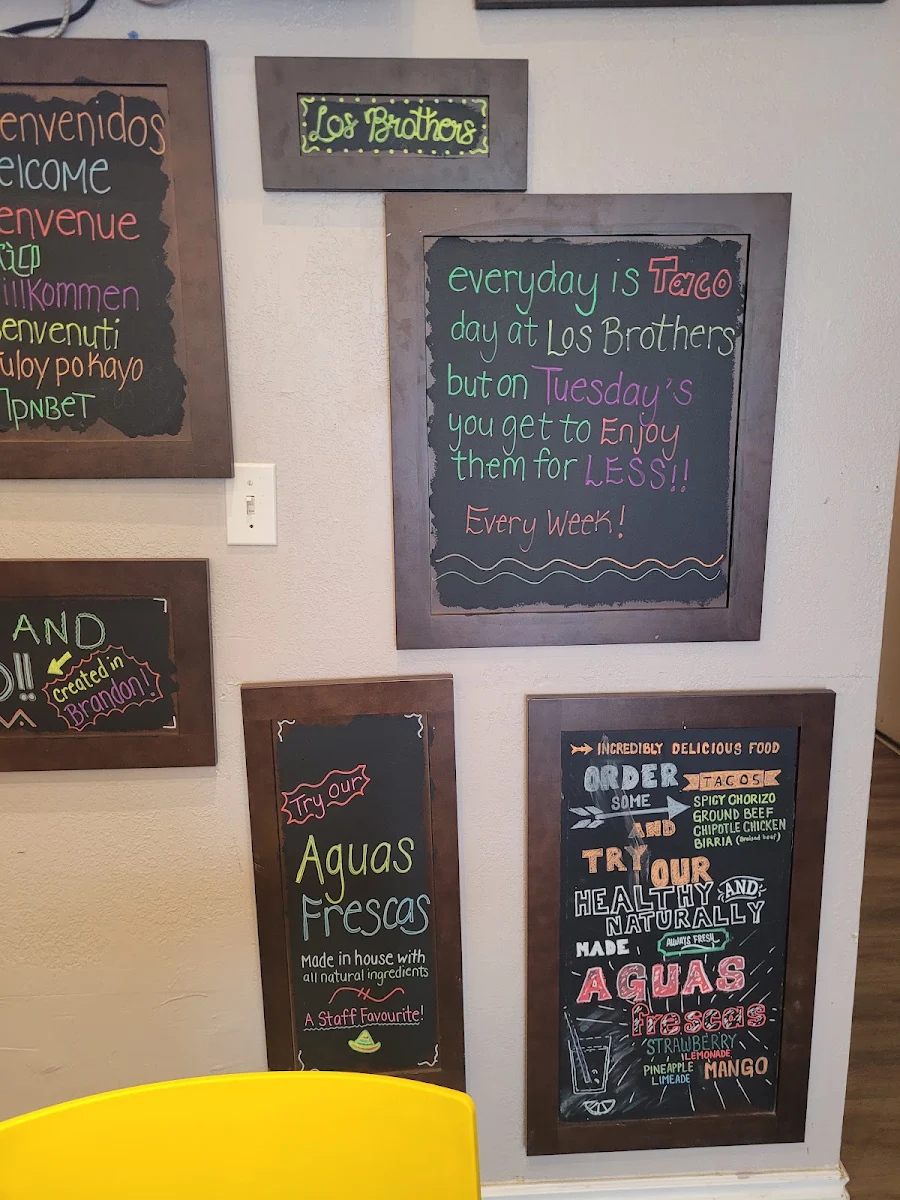 envenidos
elcome
envenue
illkommen
envenuti
uloy po Kayo
Los Brothers
everyday is Taco
day at Los Brothers
but on Tuesday's
you get to Enjoy
them for LESS!!
Every Week!
AND
O!!
created in
Brandon!
Try our
Aguas
Frescas
Made in house with
all natural ingredients
A Staff Favourite!
INCREDIBLY DELICIOUS FOOD
ORDER
SOME
TACOS
SPICY CHORIZO
GROUND BEEF
CHIPOTLE CHICKEN
BIRRIA (Braised beef)
AND
TRY OUR
HEALTHY AND
NATURALLY
MADE
ALWAYS FRESH
AGUAS
frescas
STRAWBERRY
LEMONADE
PINEAPPLE
LIMEADE
MANGO